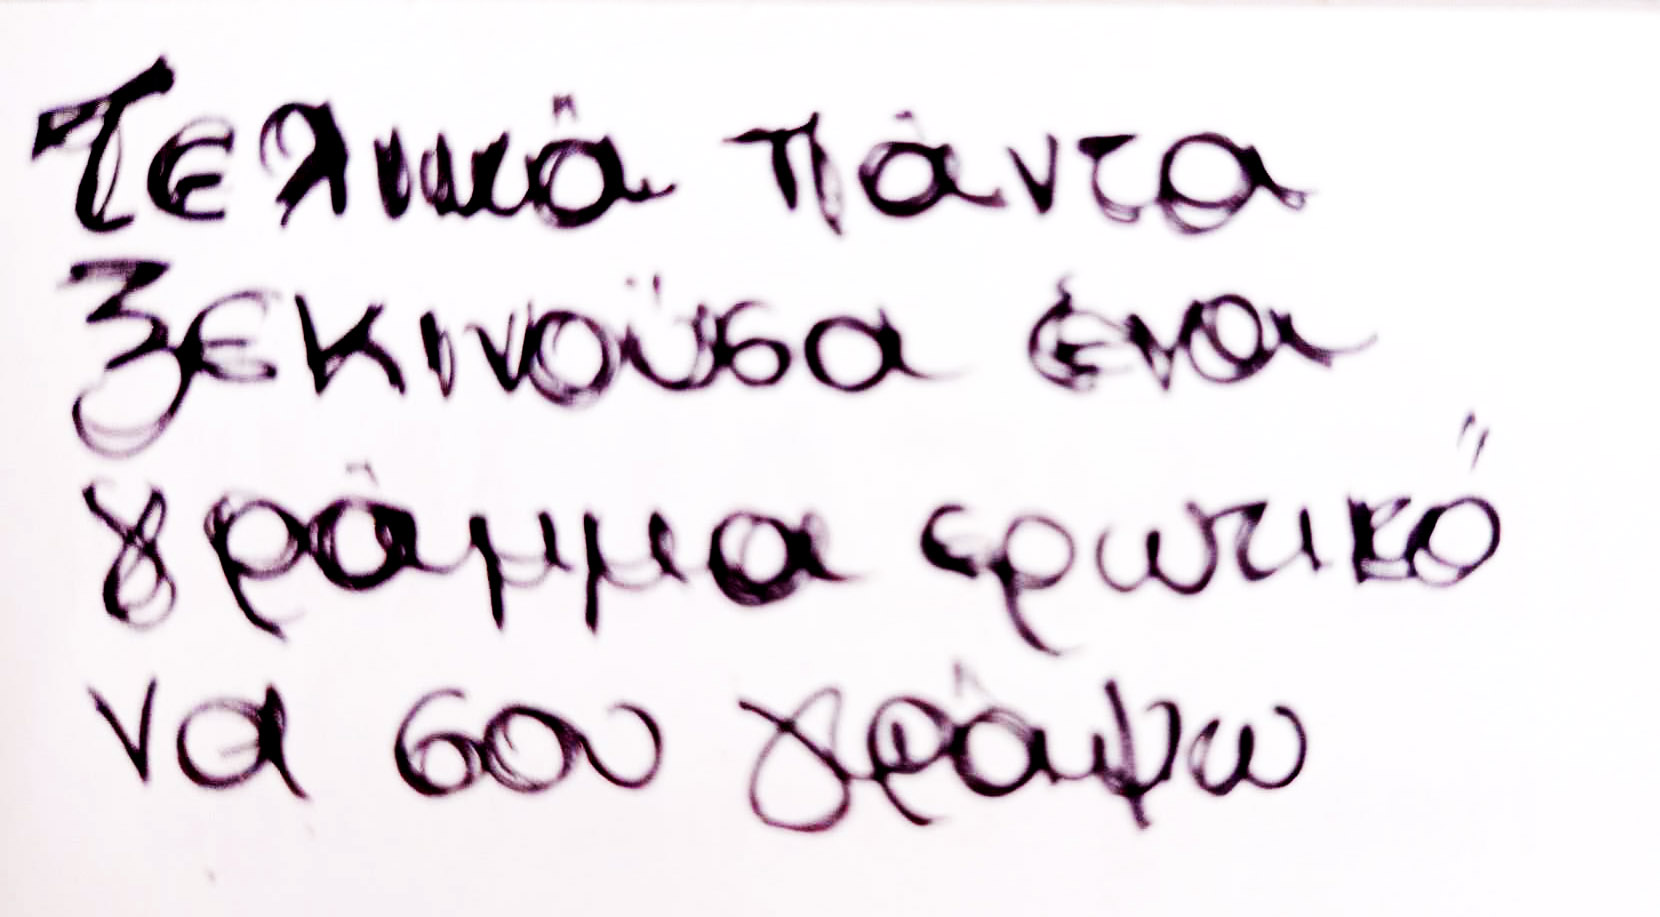 Τελικά πάντα
ξεκινούσα ένα
γράμμα ερωτικό
να σου γράψω